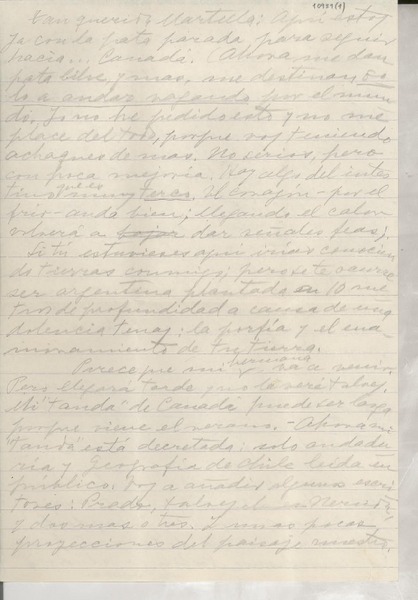 10989(1)
Tan querida Martella: Aquí estoy
ya con la pata parada para seguir
hacia... Canadá. (Ahora me dan
pata libre, y mas, me destinan so
lo a andar vagando por el mun
do. Yo no he pedido esto y no me
place del todo, porque voy teniendo
achaques de mas. No serios, pero
con poca mejoría. Hay algo del intes
tino que es muy terco. El corazón - por el
frío - anda bien; llegando el calor
volverá a bajar dar señales feas).
Si tú estuvieses aquí irías conocien
do tierras conmigo; pero se te ocurre
ser argentina plantada en 10 me
tros de profundidad a causa de una
dolencia tenaz: la porfía y el ena
moramiento de tu tierra.
Parece que mi hermana va a venir.
Pero llegará tarde, yo la veré talvez.
Mi "tanda" de Canadá puede ser larga
porque viene el verano. - Ahora mi
"tanda" está decretada: solo andade
ría y Geografía de Chile leída en
público. Voy a añadir algunos escri
tores: Prado, talvez
y dos mas o tres. Y unas pocas
proyecciones del paisaje nuestro.